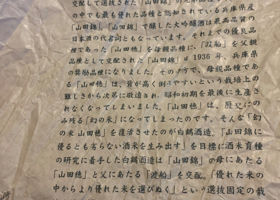 交配して選抜された「山田錦」
の中でも最も優れた品種と
「山田錦」で醸した大吟醸酒は最高品質の
日本酒の代名詞ともなっています。それまでの優良品
種であった「山田穂」を母親品種に、「渡船」を父親
品種として交配された「山田錦」は1936年、兵庫県
の奨励品種になりました。その一方で、母親品種であ
る「山田穂」は、背が高く倒れやすいという栽培上の
難しさから次第に敬遠され、昭和初期を最後に生産さ
れなくなってしまいました。「山田穂」は、歴史にの
み残る「幻の米」になってしまったのです。そんな「幻
の米 山田穂」を復活させたのが白鶴酒造。「山田錦に
優るとも劣らない酒米を生み出す」を目標に酒米育種
の研究に着手した白鶴酒造は「山田錦」の母にあたる
「山田穂」と父にあたる「渡船」を交配。「優れた米の
中からより優れた米を選びぬく」という選抜固定の我